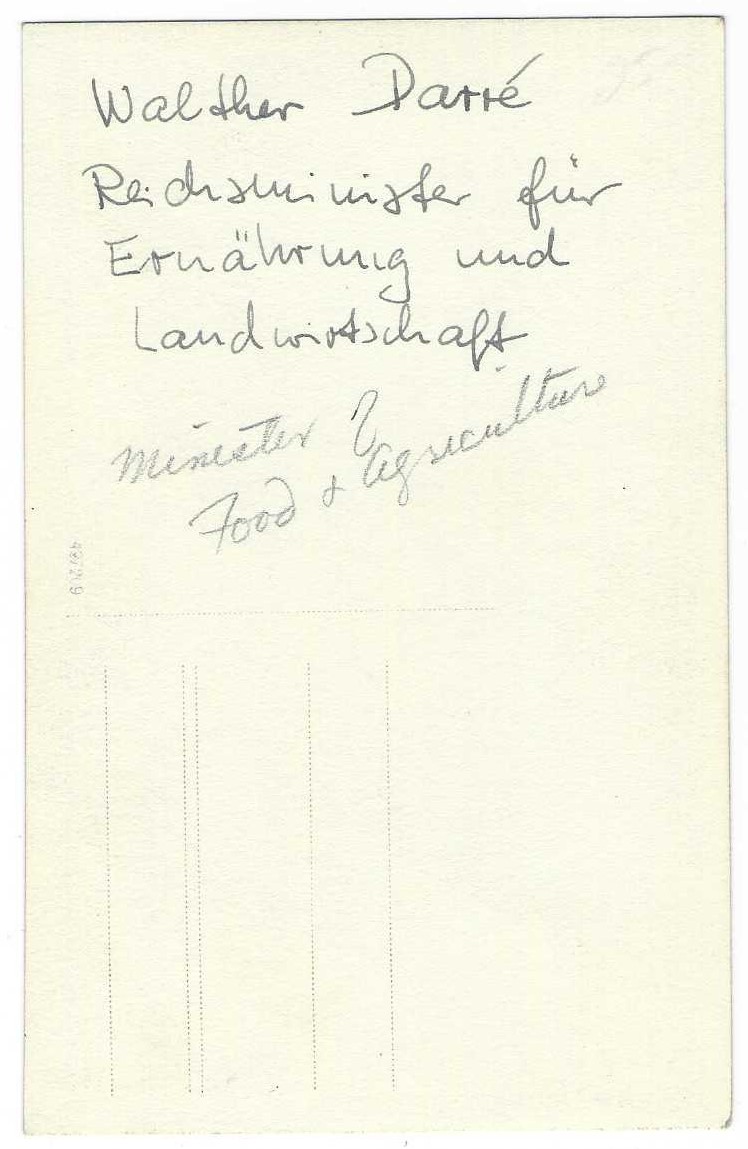 Walther Darré
Reichsminister für
Ernährung und
Landwirtschaft
Minister of
Food & Agriculture